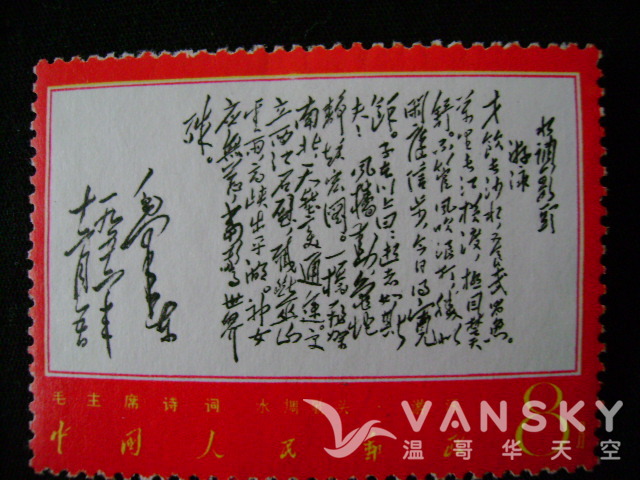 水调歌头
游泳
才饮长沙水，又食武昌鱼。
万里长江横渡，极目楚天
舒。不管风吹浪打，胜似
闲庭信步，今日得宽
馀。子在川上曰：逝者如斯
夫！风樯动，龟蛇
静，起宏图。一桥飞架
南北，天堑变通途。更
立西江石壁，截断巫山
云雨，高峡出平湖。神女
应无恙，当惊世界
殊。
毛泽东
一九五六年
十二月五日
毛主席诗词 水调歌头
中国人民邮政
8
VANSKY
温哥华天空